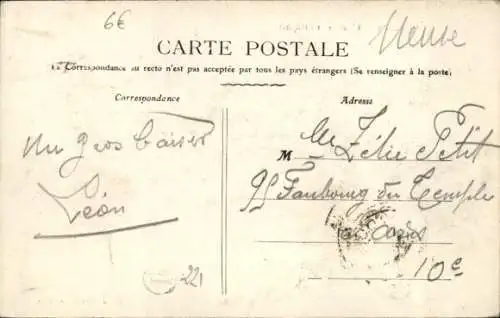 6€
Meuse
CARTE POSTALE
La Correspondance au recto n'est pas acceptée par tous les pays étrangers (Se renseigner à la poste)
Correspondance
Adresse
Un gros baiser
Léon
M Zélie Petit
Faubourg du Temple
Paris
10e
221